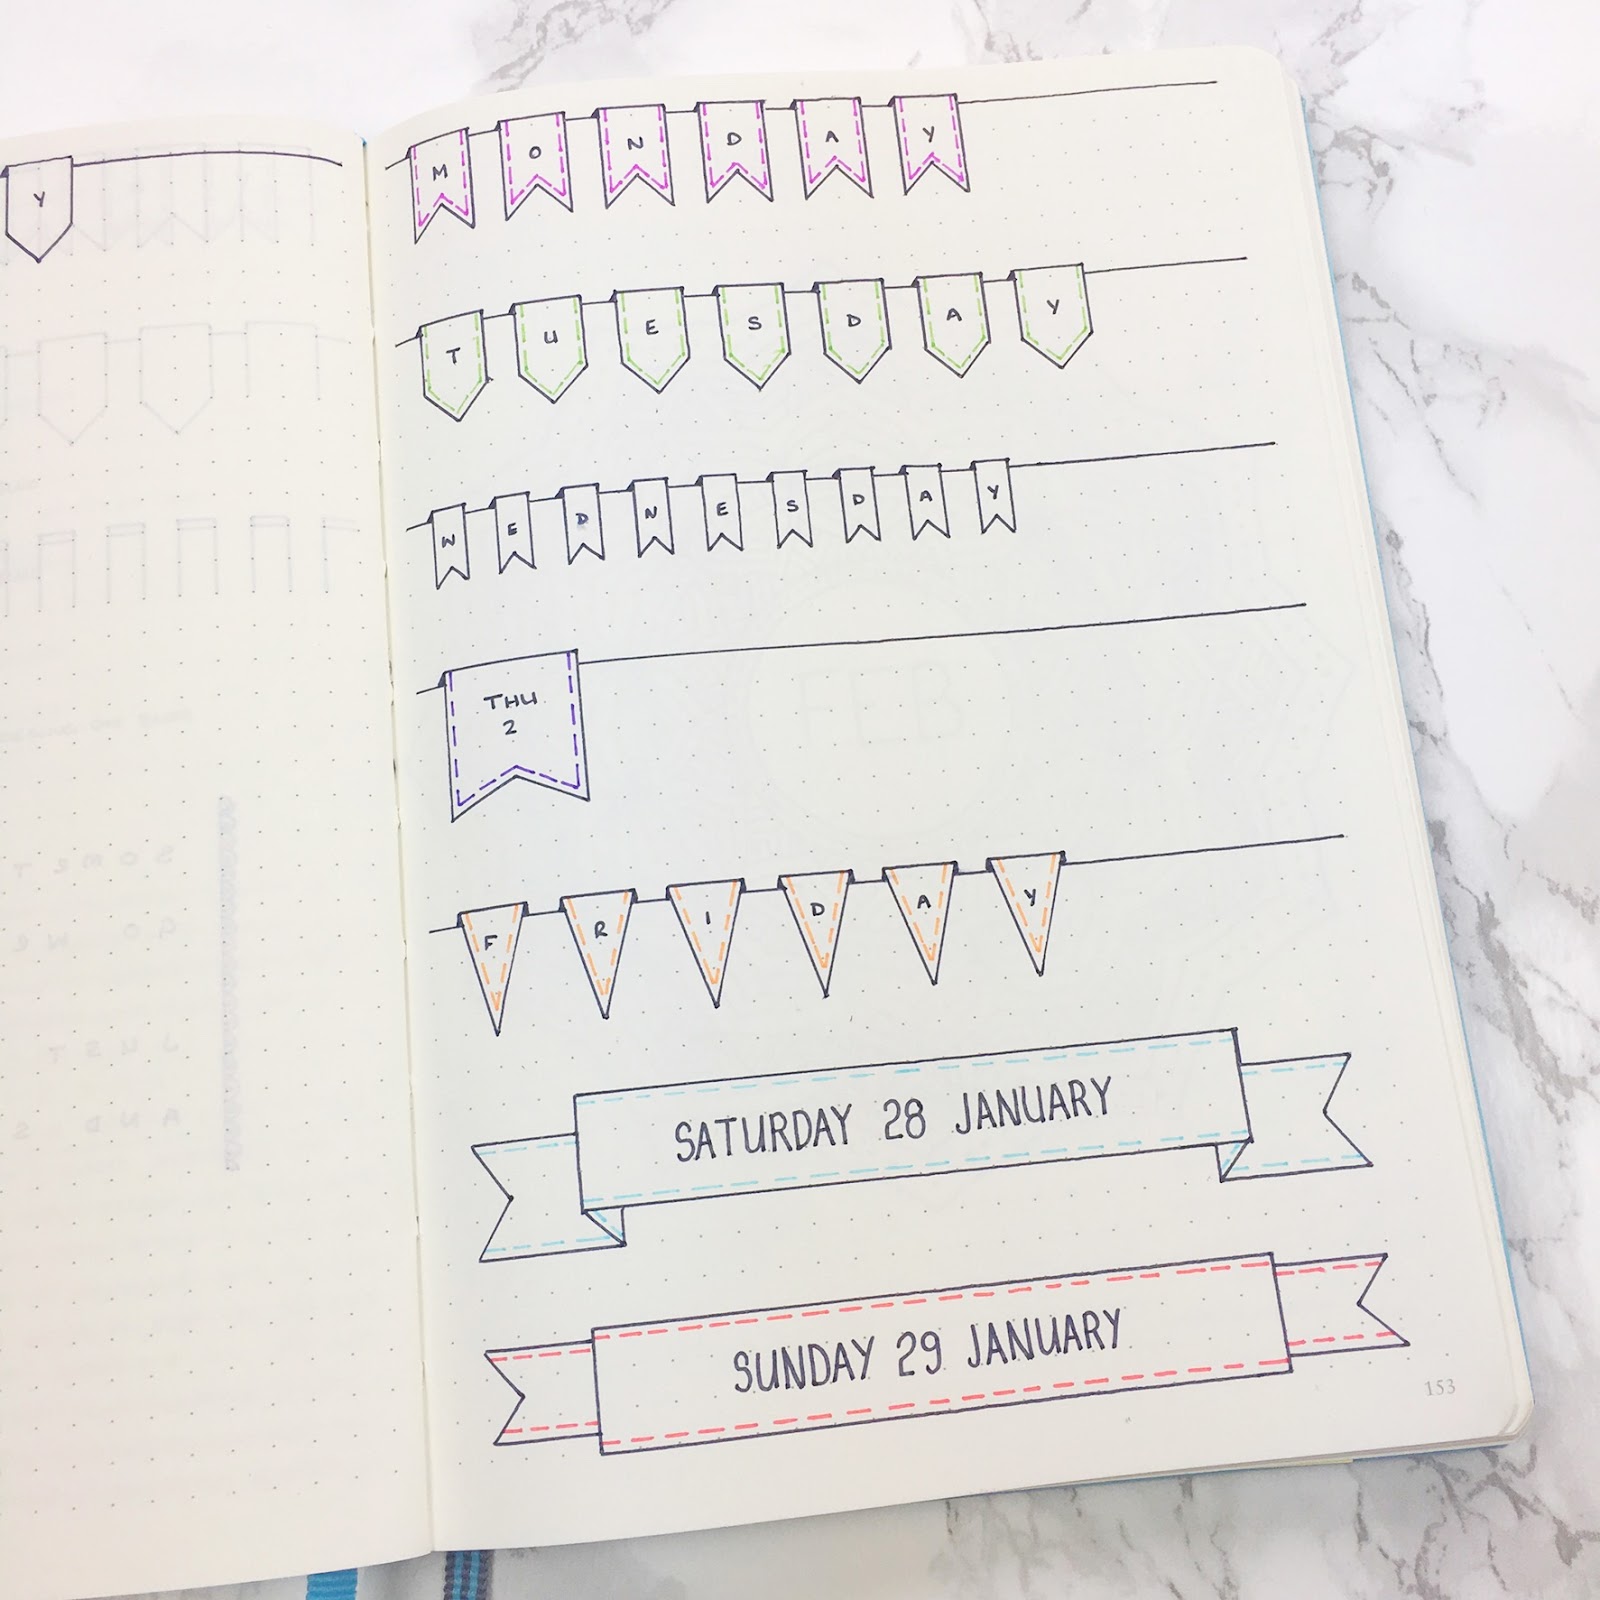 Y
MONDAY
TUESDAY
WEDNESDAY
THU
2
FRIDAY
SATURDAY 28 JANUARY
SUNDAY 29 JANUARY
153
FEB